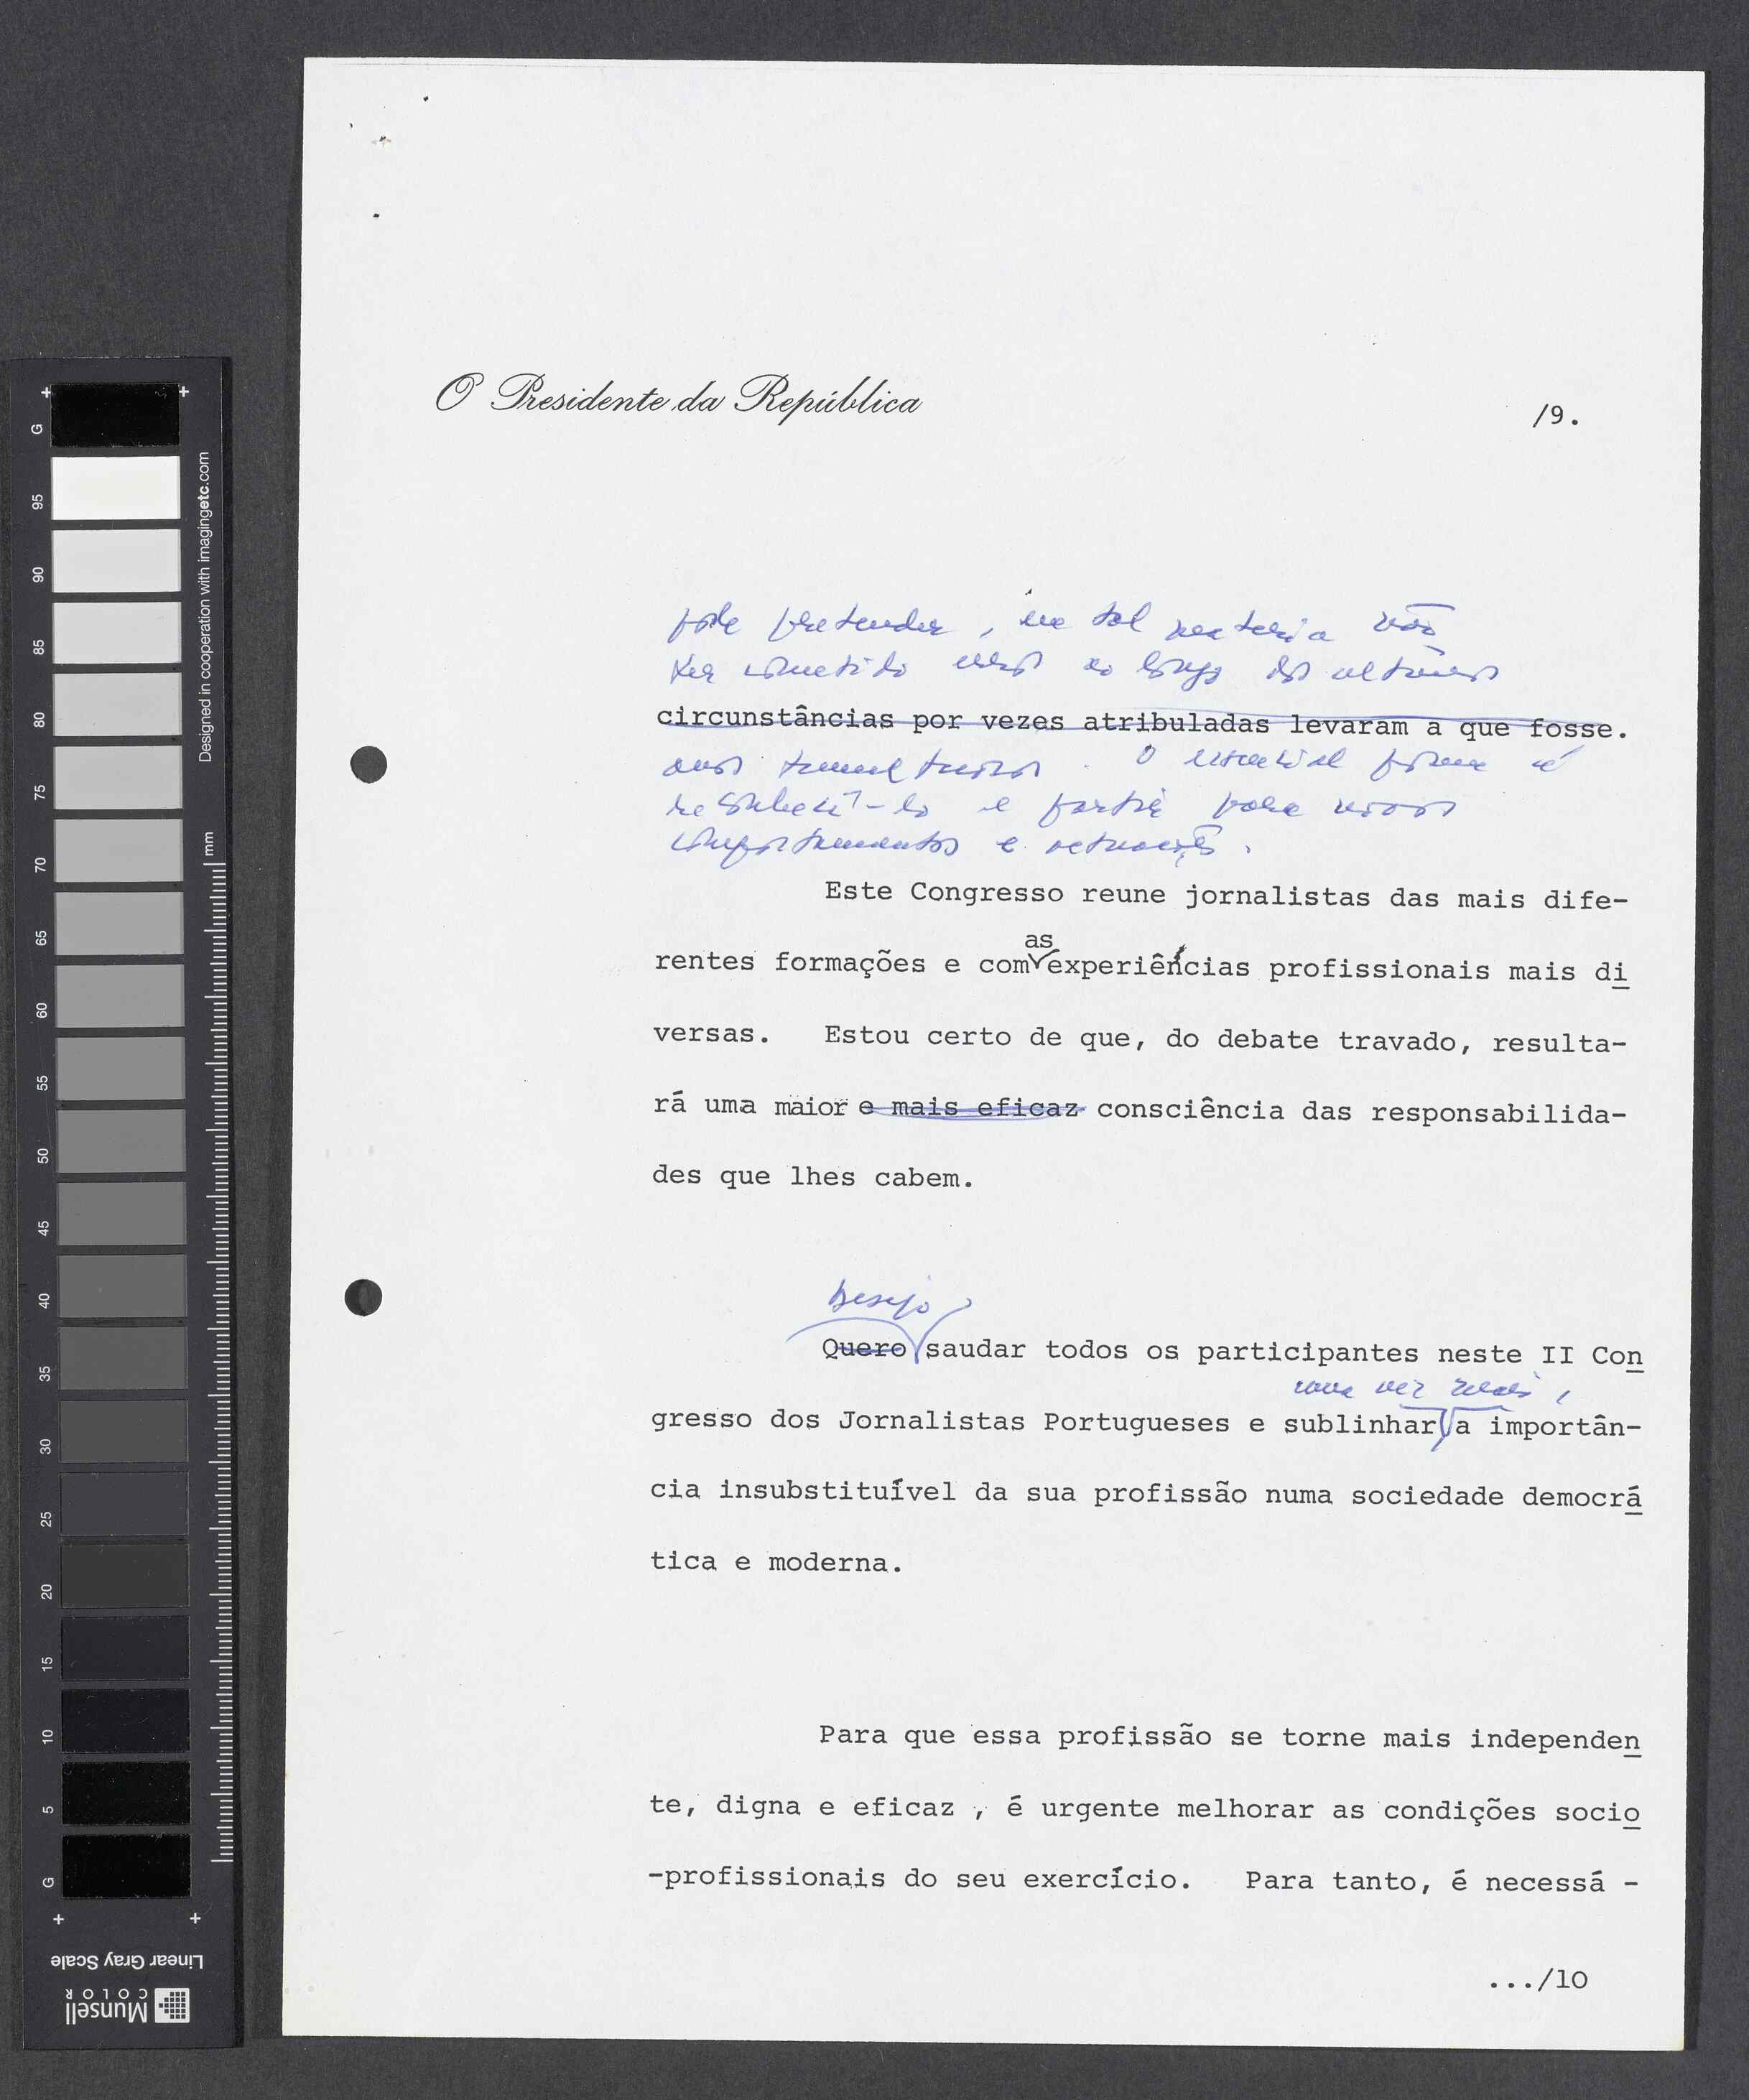 O Presidente da República
/9.
pode pretender, em tal matéria não
ter cometido erros ao longo dos últimos
circunstâncias por vezes atribuladas levaram a que fosse.
anos tumultuosos. O essencial porém é
reconhecê-lo e partir para novos
comportamentos e actuações.
Este Congresso reune jornalistas das mais dife-
as
rentes formações e com experiências profissionais mais di
versas. Estou certo de que, do debate travado, resulta-
rá uma maior e mais eficaz consciência das responsabilida-
des que lhes cabem.
Desejo
Quero saudar todos os participantes neste II Con
uma vez mais,
gresso dos Jornalistas Portugueses e sublinhar, a importân-
cia insubstituível da sua profissão numa sociedade democrá
tica e moderna.
Para que essa profissão se torne mais independen
te, digna e eficaz , é urgente melhorar as condições socio
-profissionais do seu exercício. Para tanto, é necessá -
.../10
G
95
90
85
80
75
70
65
60
55
50
45
40
35
30
25
20
15
10
5
G
mm
Designed in cooperation with imagingetc.com
Linear Gray Scale
Munsell
COLOR